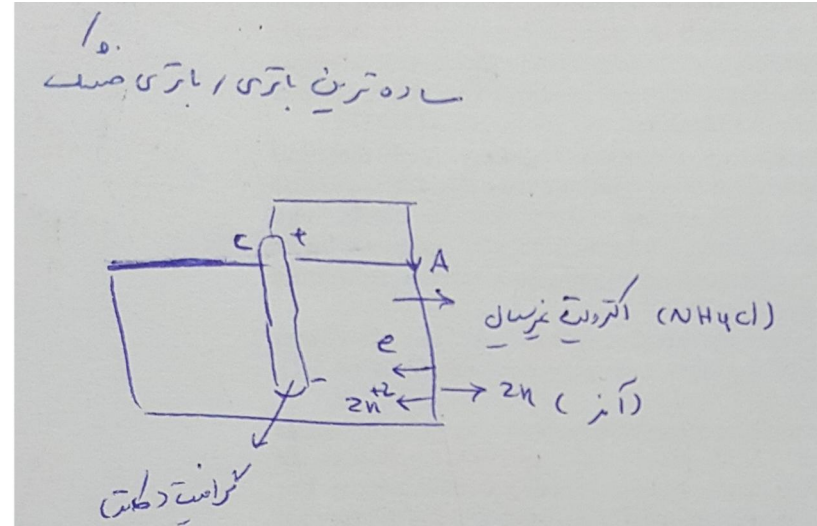 ۱۵۰
ساده ترین باتری / باتری خشک
C +
A
الکترولیت غیرسیال (NH4Cl)
e
-
Zn+2
Zn (آند)
گرافیت (کاتد)